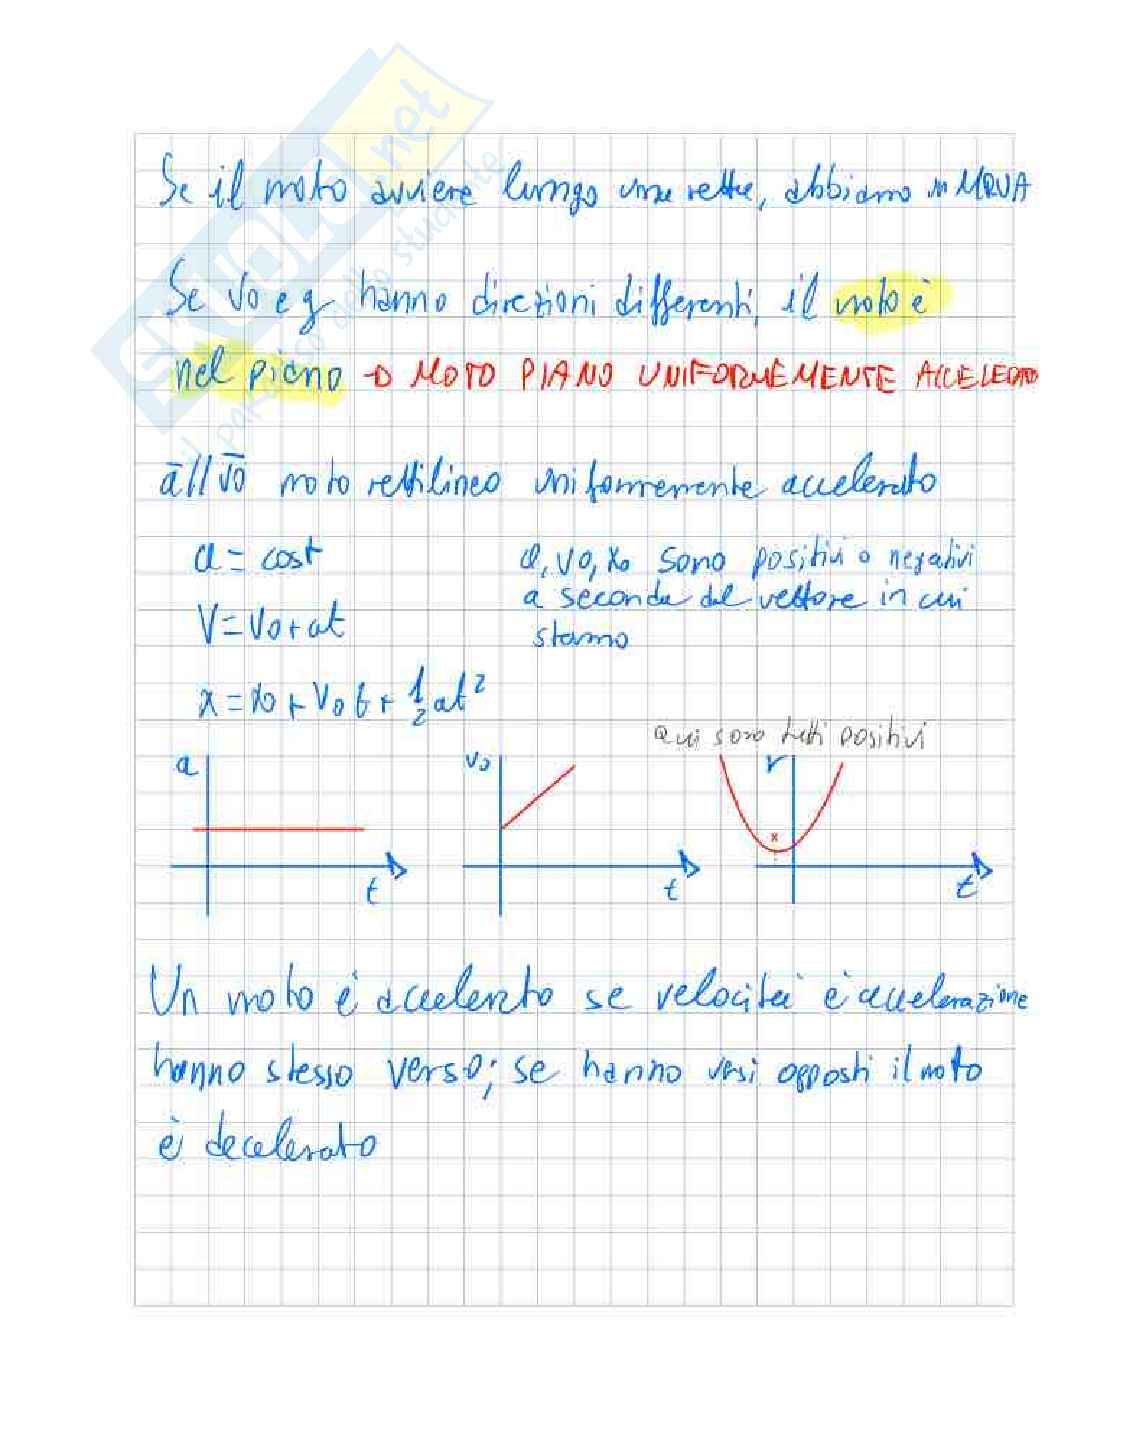 SKUOLA.net
il paradiso dello studente
Se il moto avviene lungo una retta, abbiamo un MRUA
Se v0 e g hanno direzioni differenti, il moto è
nel piano → MOTO PIANO UNIFORMEMENTE ACCELERATO
a̅ // v̅0 moto rettilineo uniformemente accelerato
a = cost
a, v0, x0 sono positivi o negativi
a seconda del vettore in cui
stamo
V = V0 + at
x = x0 + V0 t + 1/2 at²
Qui sono tutti positivi
a
v0
r
x
t
t
t
Un moto è accelerato se velocità è accelerazione
hanno stesso verso; se hanno versi opposti il moto
è decelerato